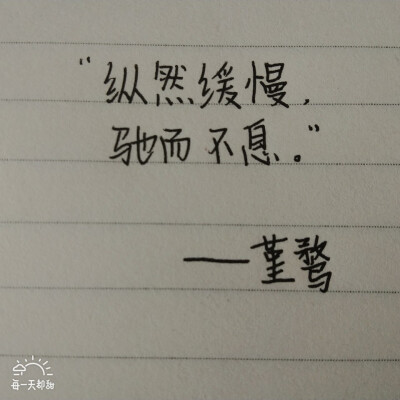 “纵然缓慢,
驰而不息。”
——堇鹜
每一天都甜